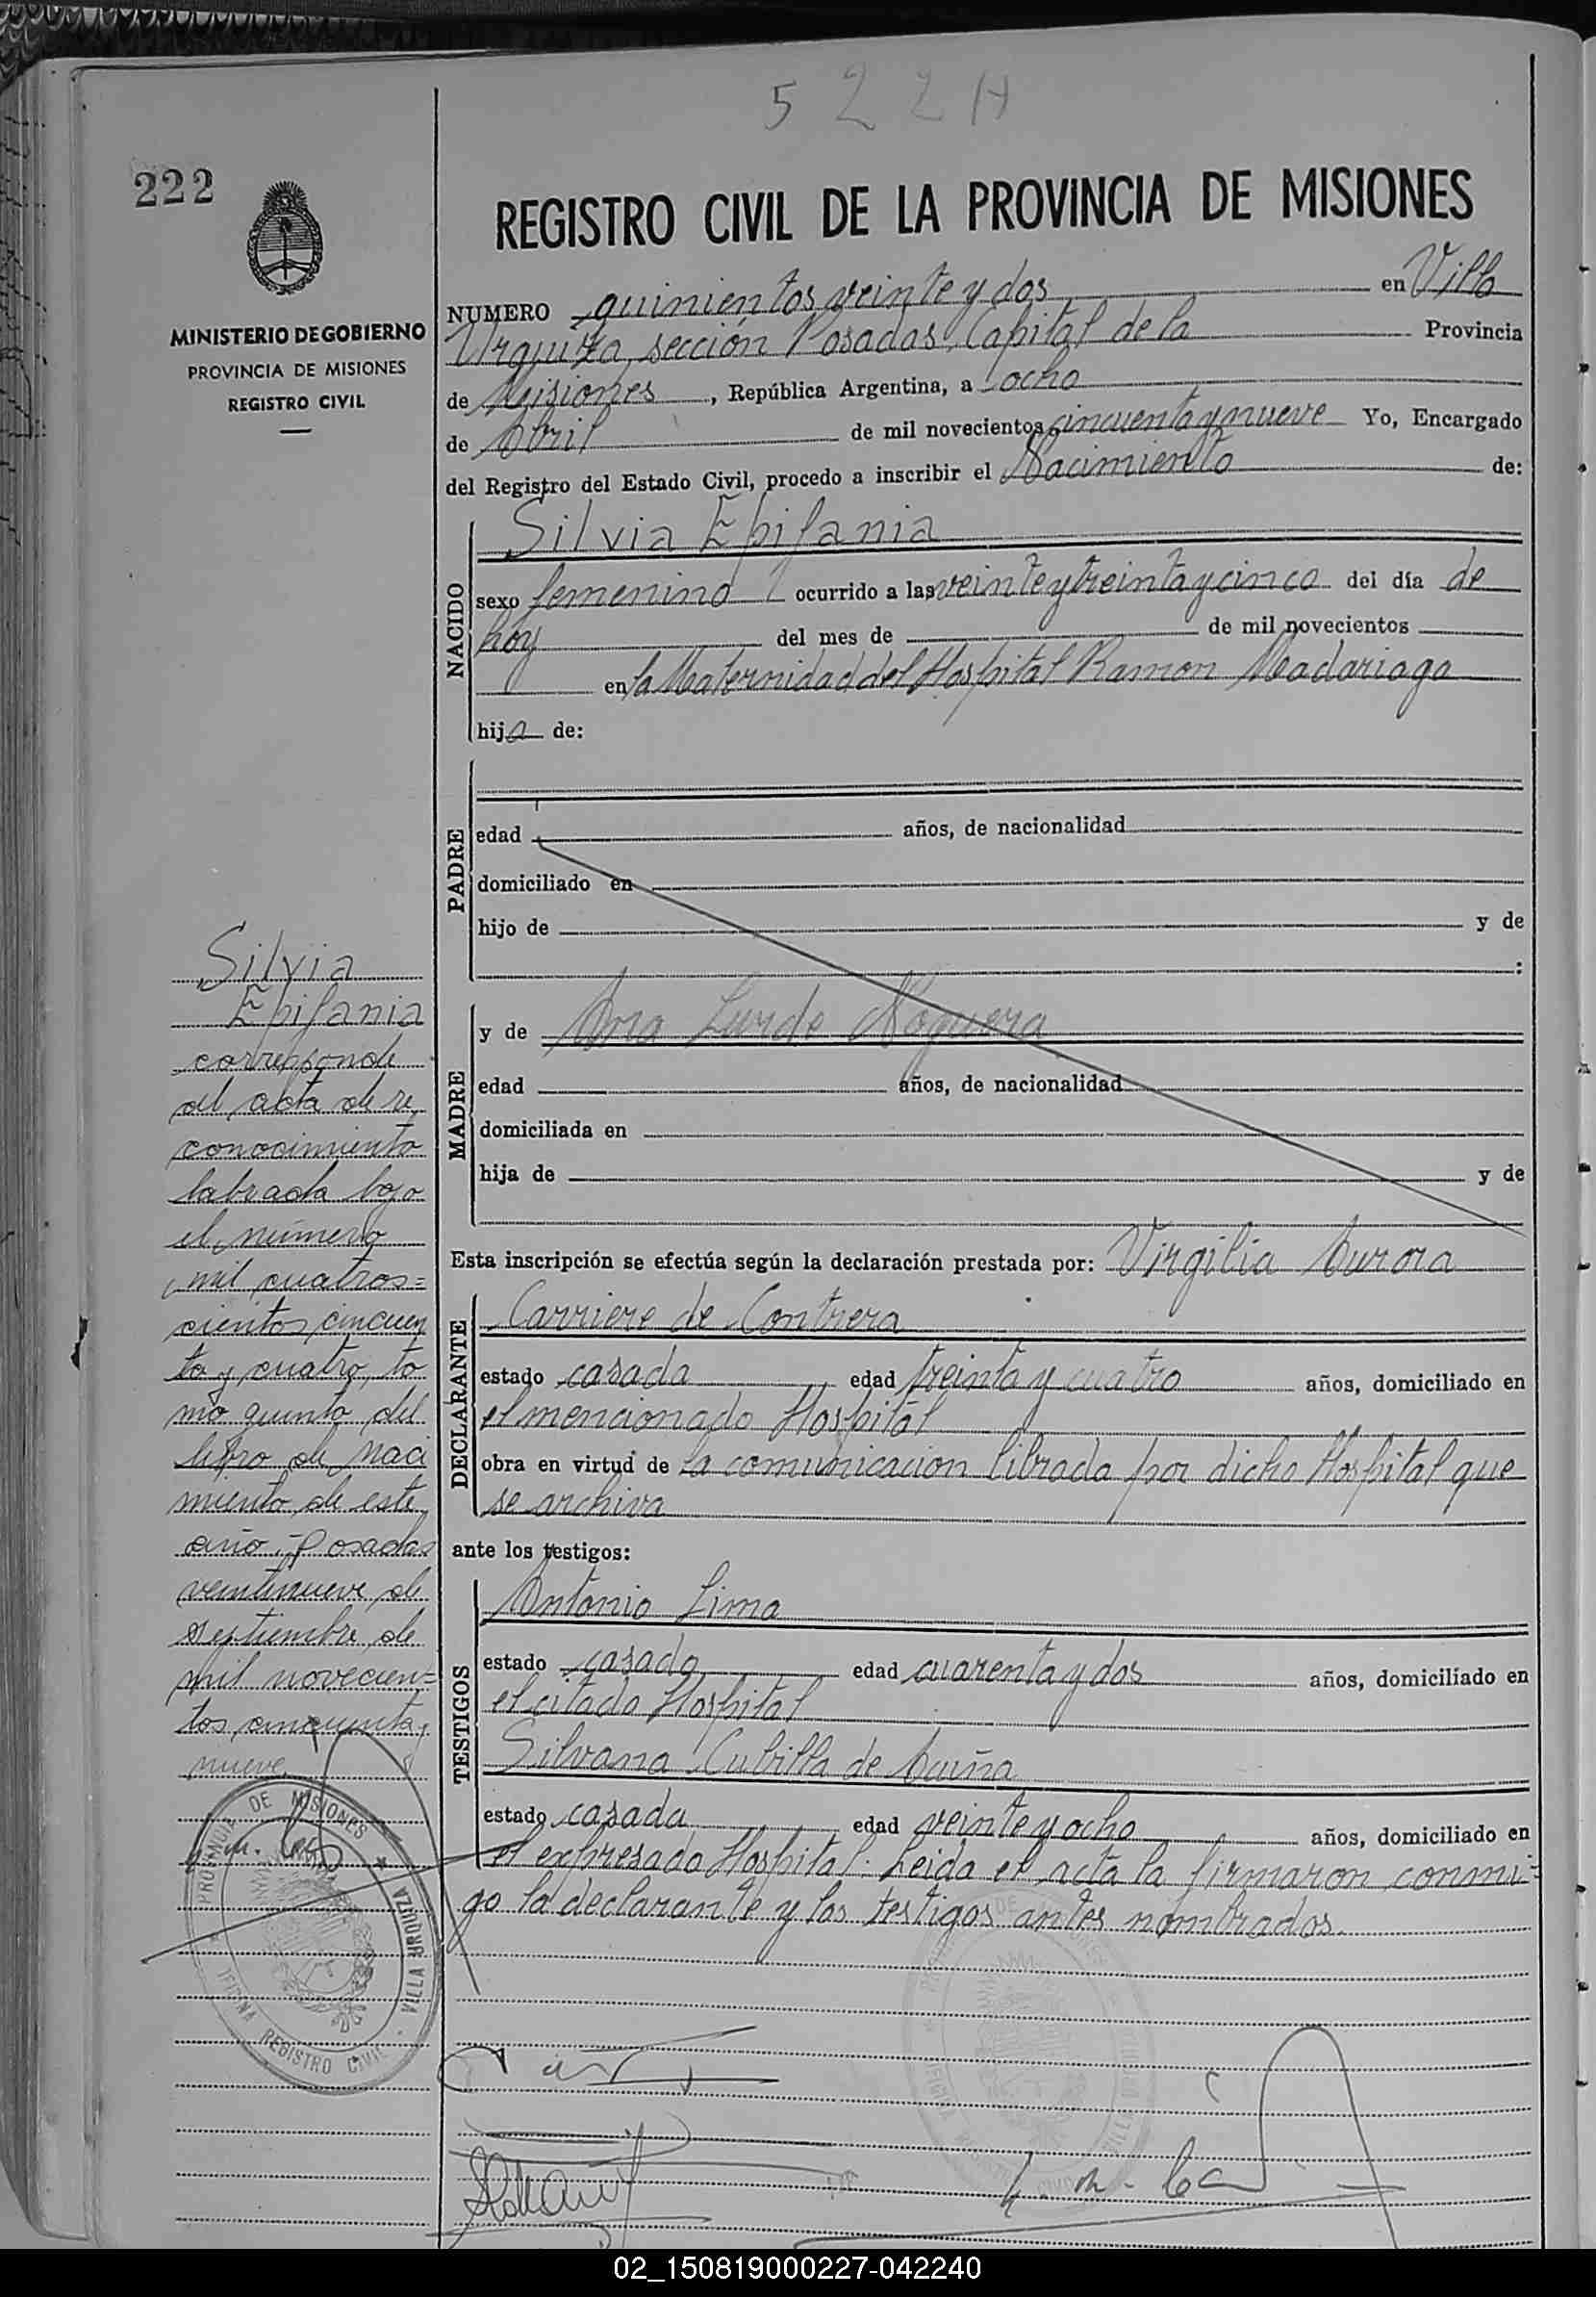 5 2 2 H
222
MINISTERIO DE GOBIERNO
PROVINCIA DE MISIONES
REGISTRO CIVIL
REGISTRO CIVIL DE LA PROVINCIA DE MISIONES
NUMERO quinientos veinte y dos en Villa
Urquiza, sección Posadas, Capital de la Provincia
de Misiones, República Argentina, a ocho
de Abril de mil novecientos cincuenta y nueve Yo, Encargado
del Registro del Estado Civil, procedo a inscribir el Nacimiento de:
NACIDO
Silvia Epifania
sexo femenino ocurrido a las veinte y treinta y cinco del día de
hoy del mes de de mil novecientos
en la Maternidad del Hospital Ramon Madariaga
hija de:
PADRE
edad años, de nacionalidad
domiciliado en
hijo de y de
:
MADRE
y de Ana Lurde Noguera
edad años, de nacionalidad
domiciliada en
hija de y de
Esta inscripción se efectúa según la declaración prestada por: Virgilia Aurora
DECLARANTE
Carriere de Contrera
estado casada edad treinta y cuatro años, domiciliado en
el mencionado Hospital
obra en virtud de la comunicacion librada por dicho Hospital que
se archiva
ante los testigos:
TESTIGOS
Antonio Lima
estado casado edad cuarenta y dos años, domiciliado en
el citado Hospital
Silvana Cubilla de Acuña
estado casada edad veinte y ocho años, domiciliado en
el expresado Hospital. Leida el acta la firmaron conmi=
go la declarante y los testigos antes nombrados.
Silvia
Epifania
corresponde
al acta de re
conocimiento
labrada bajo
el número
mil cuatros=
cientos cincuen
ta y cuatro, to
mo quinto del
libro de naci
miento de este
año.- Posadas
veintinueve de
septiembre de
mil novecien=
tos cincuenta y
nueve.
PROVINCIA DE MISIONES
VILLA URQUIZA
REGISTRO CIVIL
02_150819000227-042240